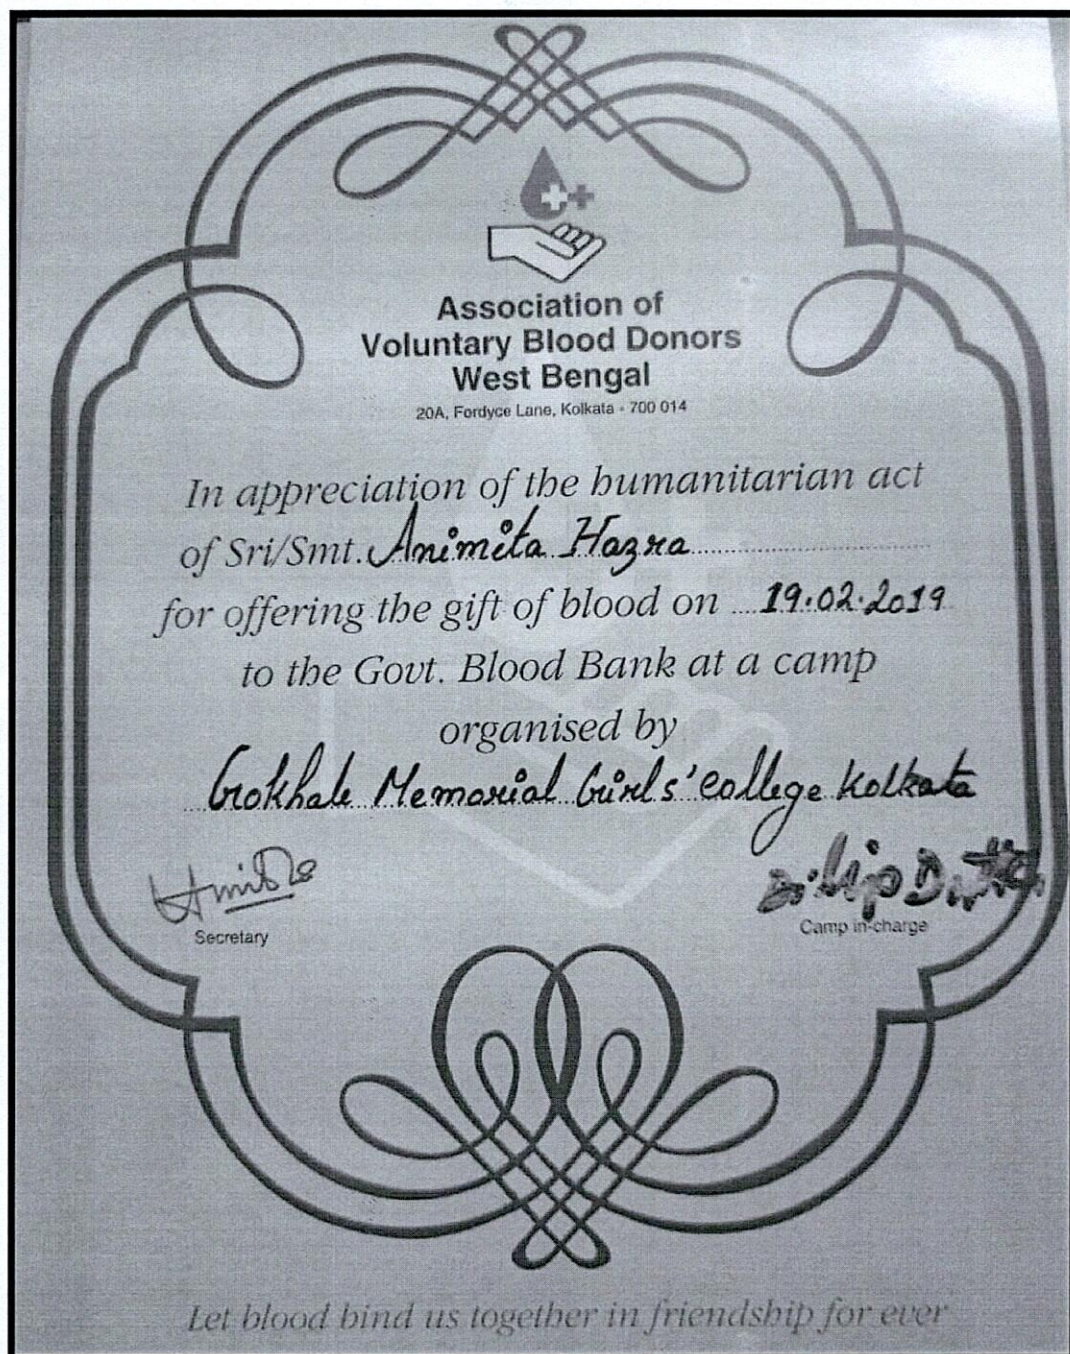 Association of
Voluntary Blood Donors
West Bengal
20A, Fordyce Lane, Kolkata - 700 014
In appreciation of the humanitarian act
of Sri/Smt. Animita Hazra
for offering the gift of blood on 19.02.2019
to the Govt. Blood Bank at a camp
organised by
Gokhale Memorial Girls' College Kolkata
Secretary
Camp in-charge
Let blood bind us together in friendship for ever